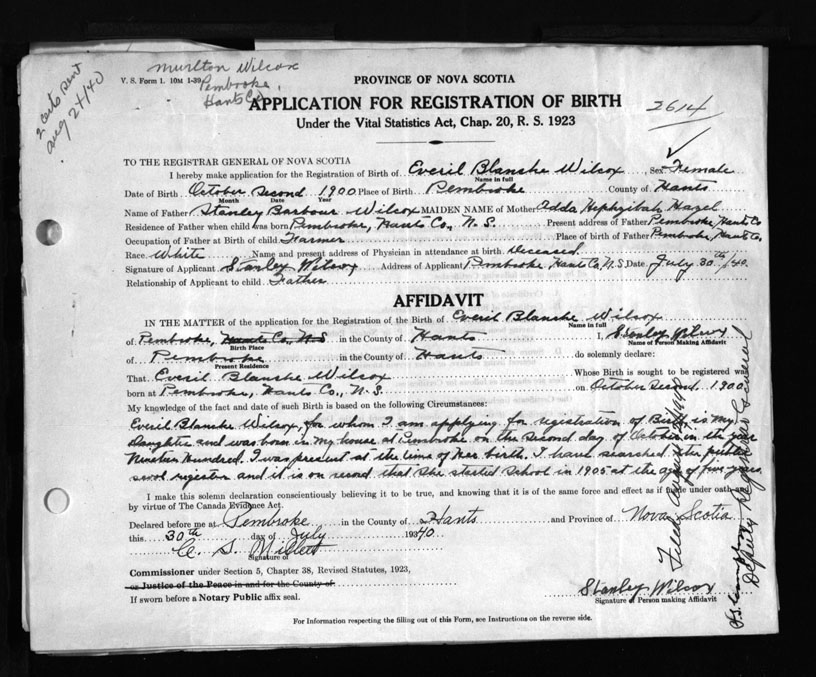 Murlton Wilcox
V. S. Form 1. 10M 1-39
Pembroke,
Hants Co
2 certs sent
Aug 24/40
PROVINCE OF NOVA SCOTIA
APPLICATION FOR REGISTRATION OF BIRTH
2614
Under the Vital Statistics Act, Chap. 20, R. S. 1923
TO THE REGISTRAR GENERAL OF NOVA SCOTIA
I hereby make application for the Registration of Birth of Everil Blanshe Wilcox Sex Female
Name in full
Date of Birth October Second 1900 Place of Birth Pembroke County of Hants
Month Date Year
Name of Father Stanley Barbour Wilcox MAIDEN NAME of Mother Adda Hephzibah Hazel
Residence of Father when child was born Pembroke, Hants Co., N. S. Present address of Father Pembroke, Hants Co
Occupation of Father at Birth of child Farmer Place of birth of Father Pembroke, Hants Co,
Race White Name and present address of Physician in attendance at birth Deceased
Signature of Applicant Stanley Wilcox Address of Applicant Pembroke Hants Co. N. S. Date July 30th/40
Relationship of Applicant to child Father
AFFIDAVIT
IN THE MATTER of the application for the Registration of the Birth of Everil Blanshe Wilcox
Name in full
of Pembroke, Hants Co., N. S in the County of Hants I, Stanley Wilcox
Birth Place Name of Person Making Affidavit
of Pembroke in the County of Hants do solemnly declare:
Present Residence
That Everil Blanshe Wilcox Whose Birth is sought to be registered was
born at Pembroke, Hants Co., N. S. on October Second 1900
My knowledge of the fact and date of such Birth is based on the following Circumstances:
Everil Blanshe Wilcox, for whom I am applying for registration of Birth is my
Daughter and was born in my house at Pembroke on the Second day of October in the year
Nineteen Hundred. I was present at the time of her birth. I have searched the public
scool register and it is on record that she started School in 1905 at the age of five years
I make this solemn declaration conscientiously believing it to be true, and knowing that it is of the same force and effect as if made under oath and
by virtue of The Canada Evidence Act.
Declared before me at Pembroke in the County of Hants and Province of Nova Scotia
this 30th day of July 1940
C. S. Millett
Signature of
Commissioner under Section 5, Chapter 38, Revised Statutes, 1923,
or Justice of the Peace in and for the County of
If sworn before a Notary Public affix seal.
Stanley Wilcox
Signature of Person making Affidavit
Filed Aug
Deputy Registrar General
For Information respecting the filling out of this Form, see Instructions on the reverse side.